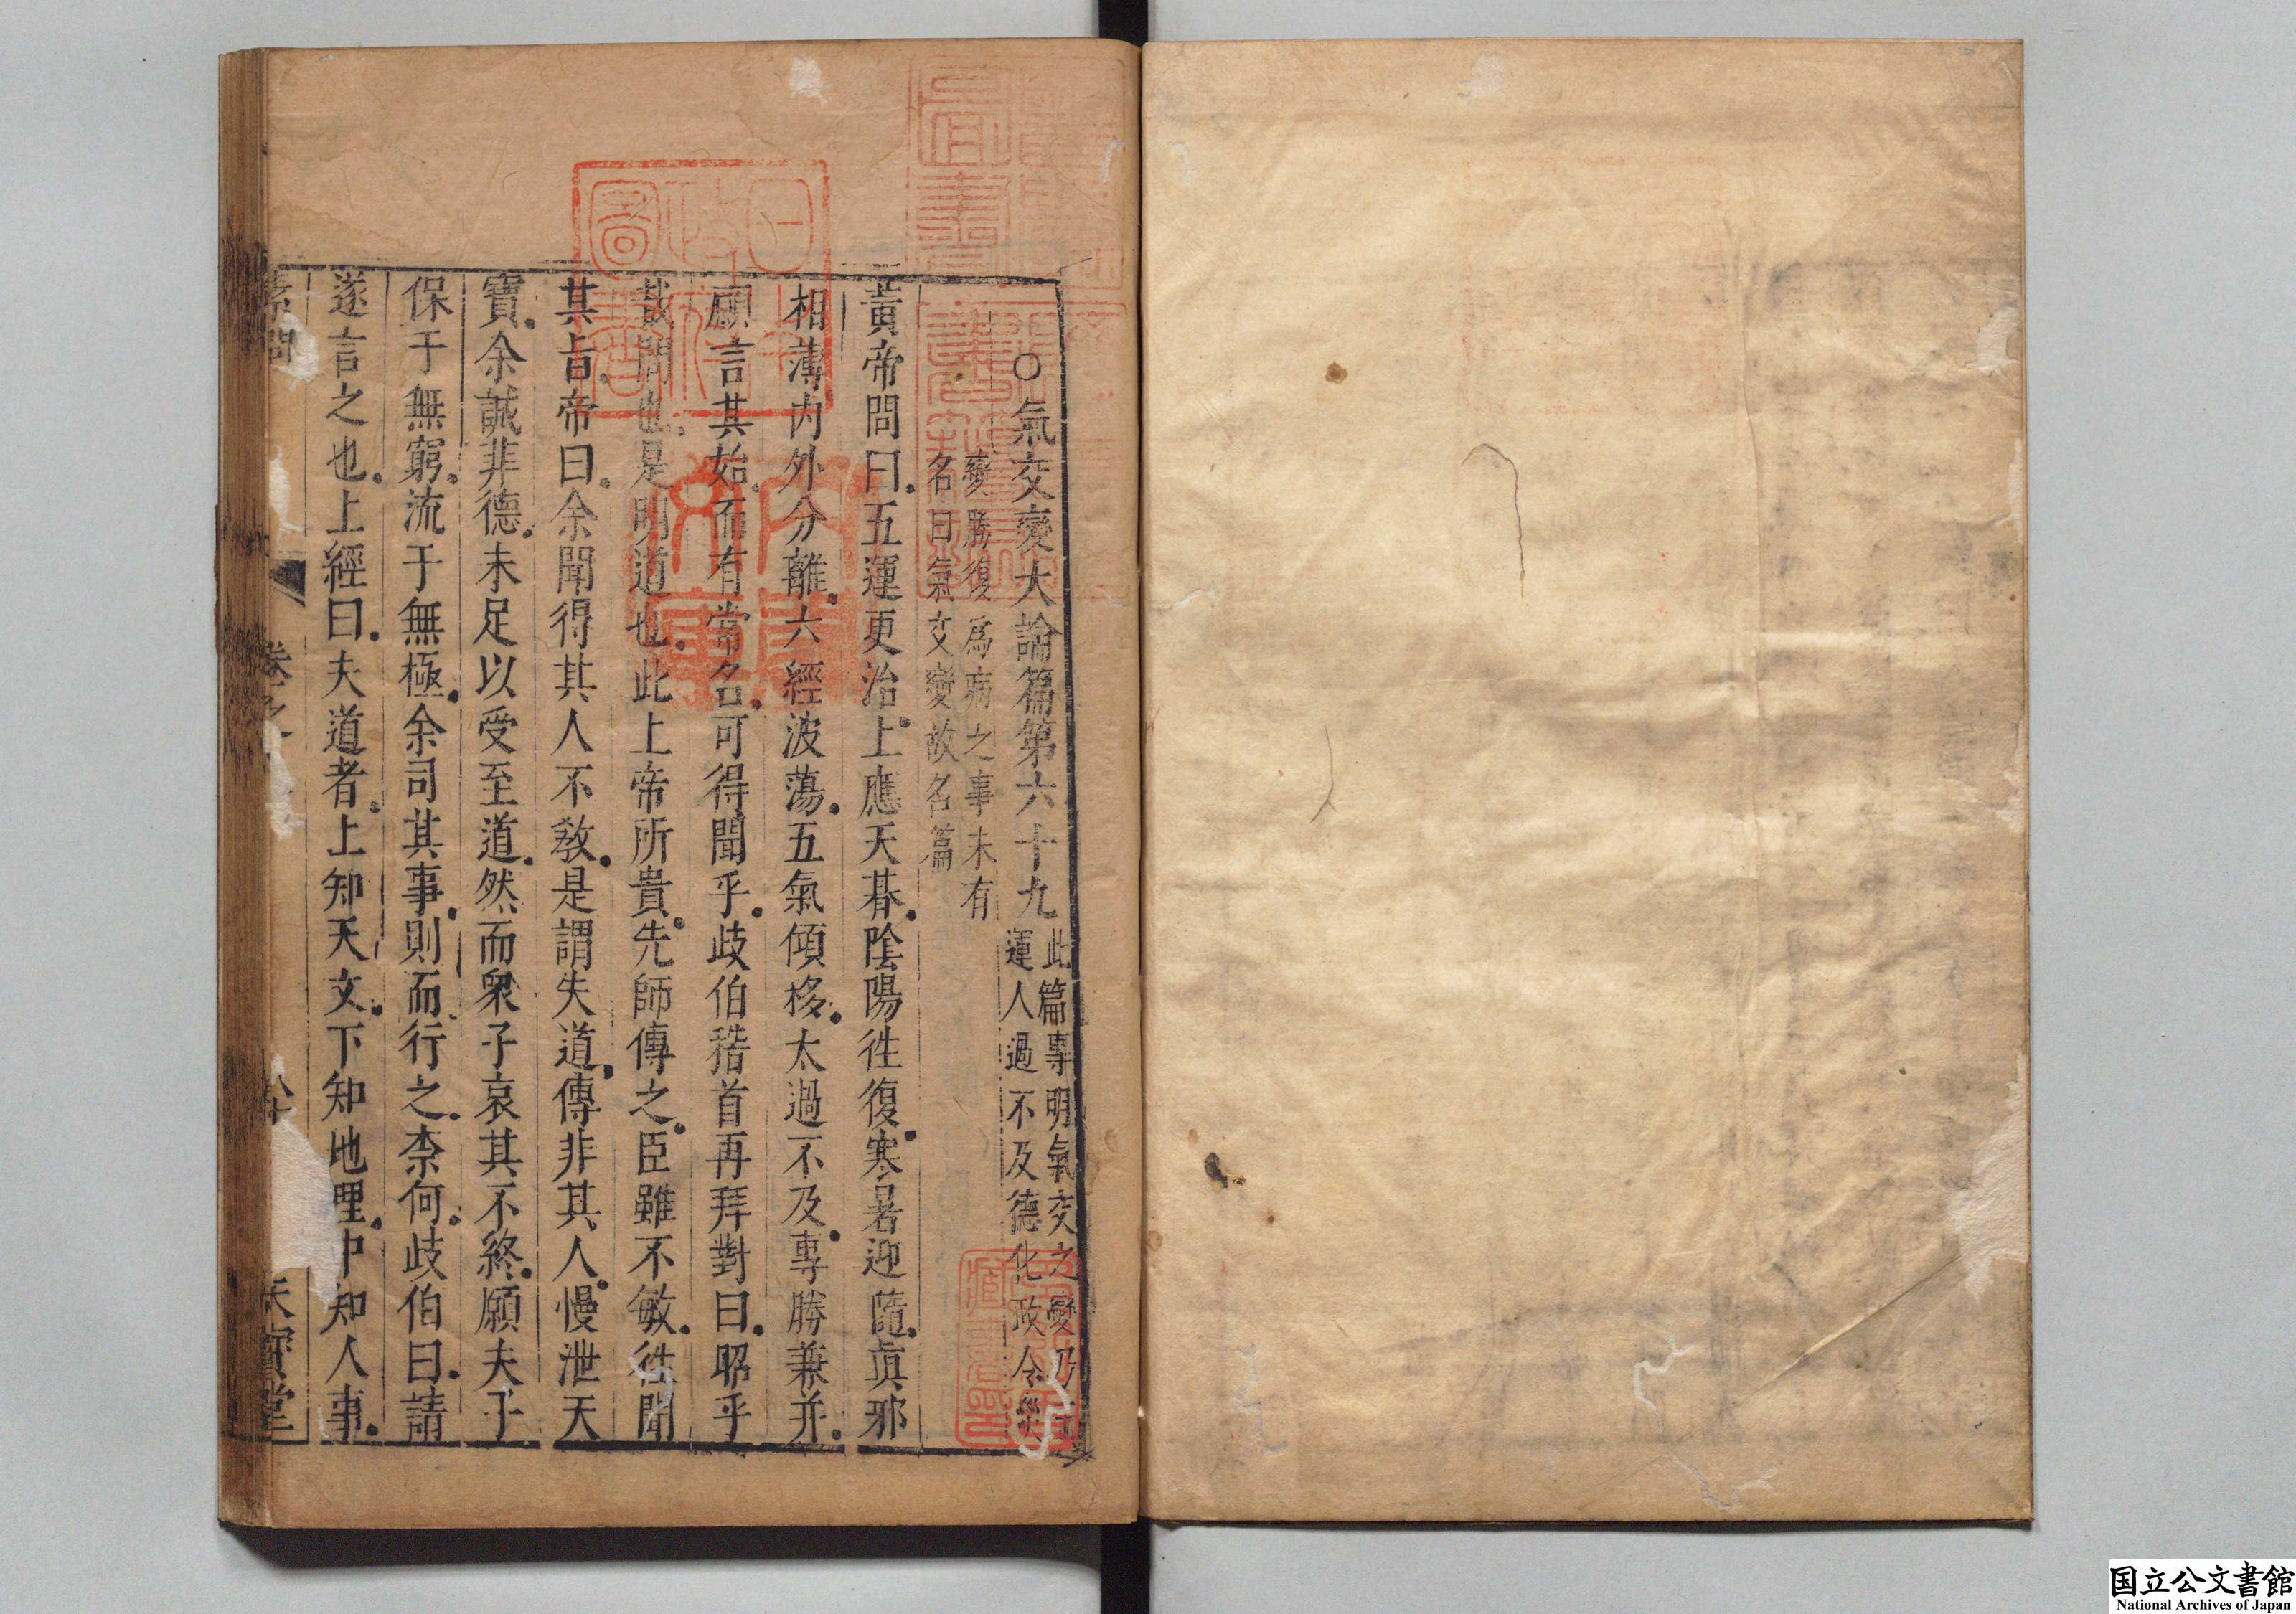 ○氣交變大論篇第六十九
此篇專明氣交之變乃五
運人過不及德化政令災
變勝復爲病之事未有
名曰氣交變故名篇
黃帝問曰五運更治上應天朞陰陽徃復寒暑迎隨眞邪
相薄內外分離六經波蕩五氣傾移太過不及專勝兼并
願言其始而有常名可得聞乎歧伯稽首再拜對曰昭乎
哉問也是明道也此上帝所貴先師傳之臣雖不敏徃聞
其旨帝曰余聞得其人不敎是謂失道傳非其人慢泄天
寶余誠菲德未足以受至道然而衆子哀其不終願夫子
保于無窮流于無極余司其事則而行之柰何歧伯曰請
遂言之也上經曰夫道者上知天文下知地理中知人事
素問
卷之
天寶堂
日本政府圖書
內閣文庫
国立公文書館
National Archives of Japan